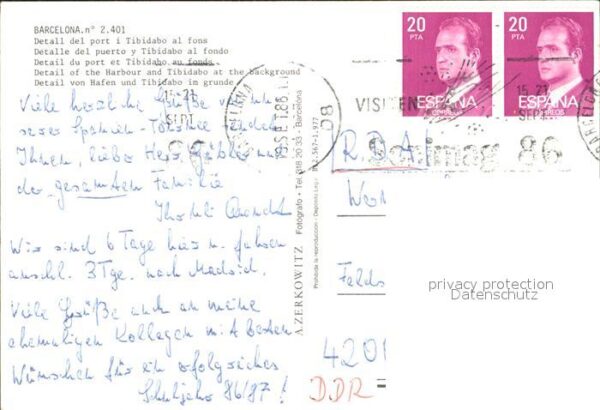 BARCELONA.n° 2.401
Detall del port i Tibidabo al fons
Detalle del puerto y Tibidabo al fondo
Detail du port et Tibidabo au fond
Detail of the Harbour and Tibidabo at the background
Detail von Hafen und Tibidabo im grunde
Viele herzliche Grüße von
Spanien - Tournee sendet
Ihnen, lieber Herr
der gesamten Familie
Wir sind 6 Tage hier u. fahren
anschl. 3 Tge. nach Madrid.
Viele Grüße auch an meine
ehemaligen Kollegen mit besten
Wünschen für ein erfolgreiches
Schuljahr 86/87!
A. ZERKOWITZ Fotógrafo - Tel. 218 20 33 - Barcelona
Prohibida la reproducción - Depósito Legal B 12.567-1.977
20
PTA
ESPAÑA
CORREOS
20
PTA
ESPAÑA
CORREOS
15.21
SEPT
BARCELONA
VISITEN
Sonimag 86
R.D.A.
Felds
4201
DDR
privacy protection
Datenschutz